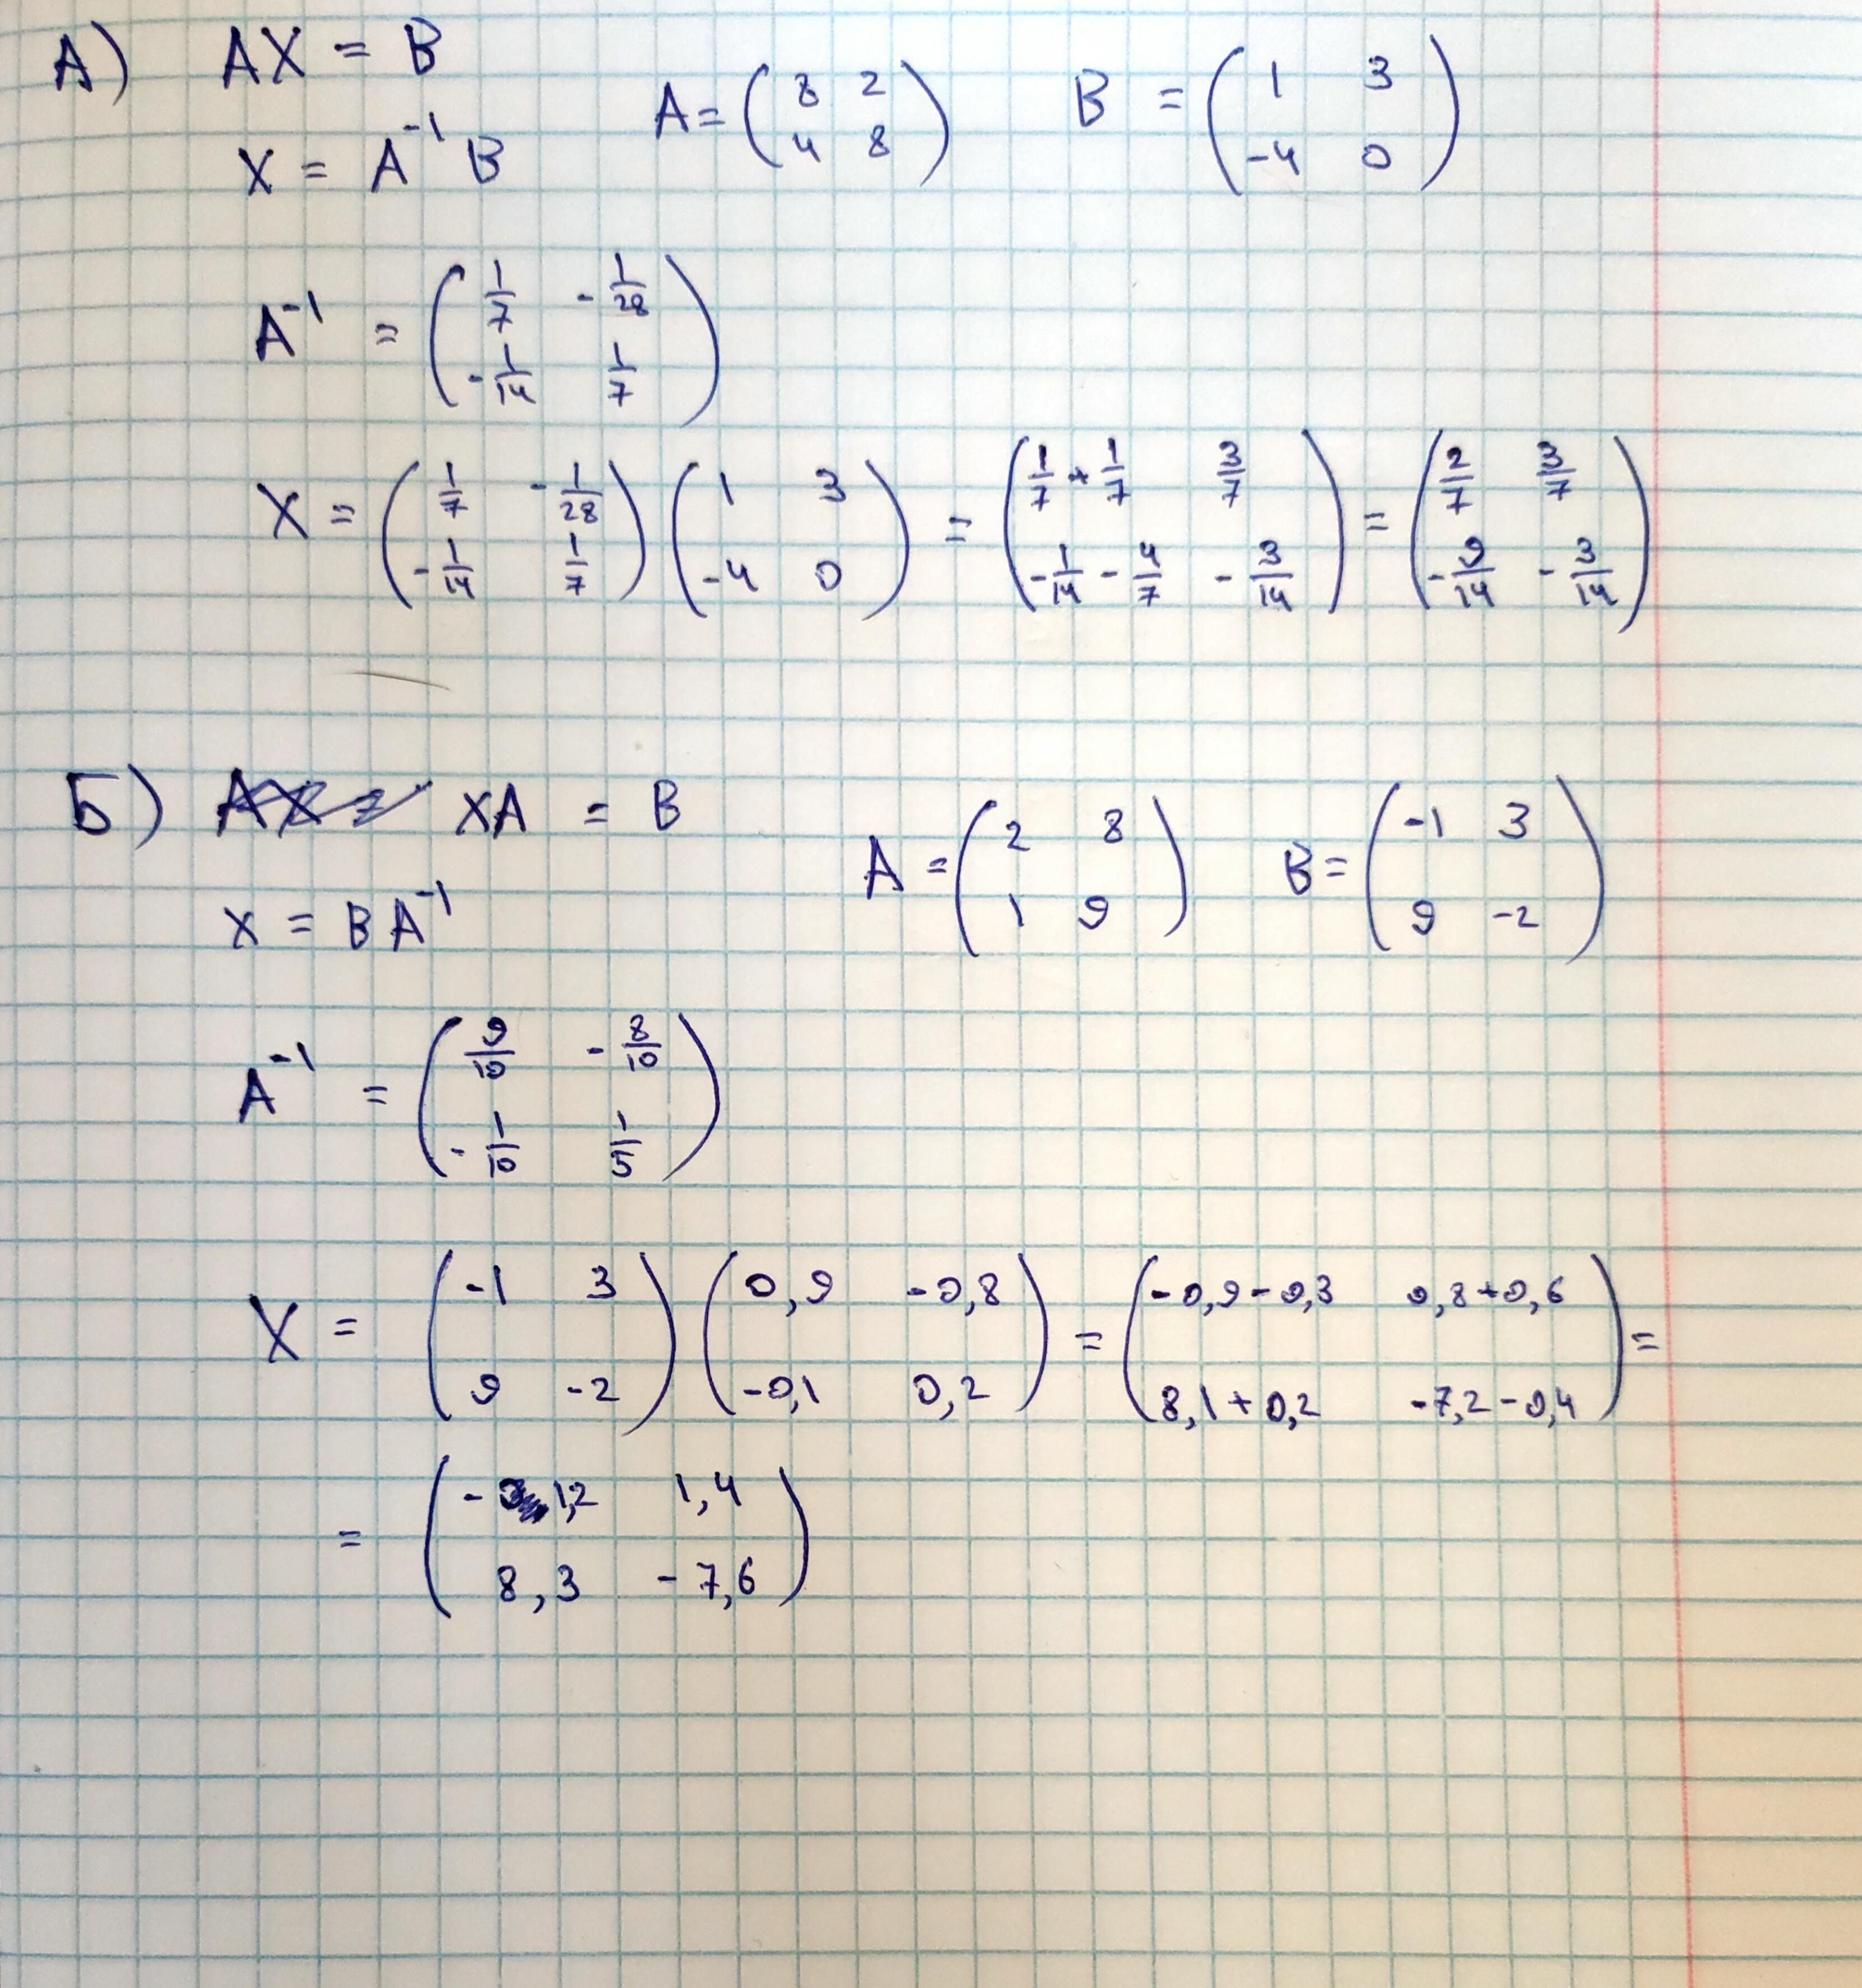 А) AX = B A = ( 8 2 ; 4 8 ) B = ( 1 3 ; -4 0 )
X = A⁻¹ B
A⁻¹ = ( 1/7 -1/28 ; -1/14 1/7 )
X = ( 1/7 -1/28 ; -1/14 1/7 ) ( 1 3 ; -4 0 ) = ( 1/7 + 1/7 3/7 ; -1/14 - 4/7 -3/14 ) = ( 2/7 3/7 ; -9/14 -3/14 )
Б) XA = B A = ( 2 8 ; 1 9 ) B = ( -1 3 ; 9 -2 )
X = B A⁻¹
A⁻¹ = ( 9/10 -8/10 ; -1/10 1/5 )
X = ( -1 3 ; 9 -2 ) ( 0,9 -0,8 ; -0,1 0,2 ) = ( -0,9-0,3 0,8+0,6 ; 8,1+0,2 -7,2-0,4 ) =
= ( -1,2 1,4 ; 8,3 -7,6 )